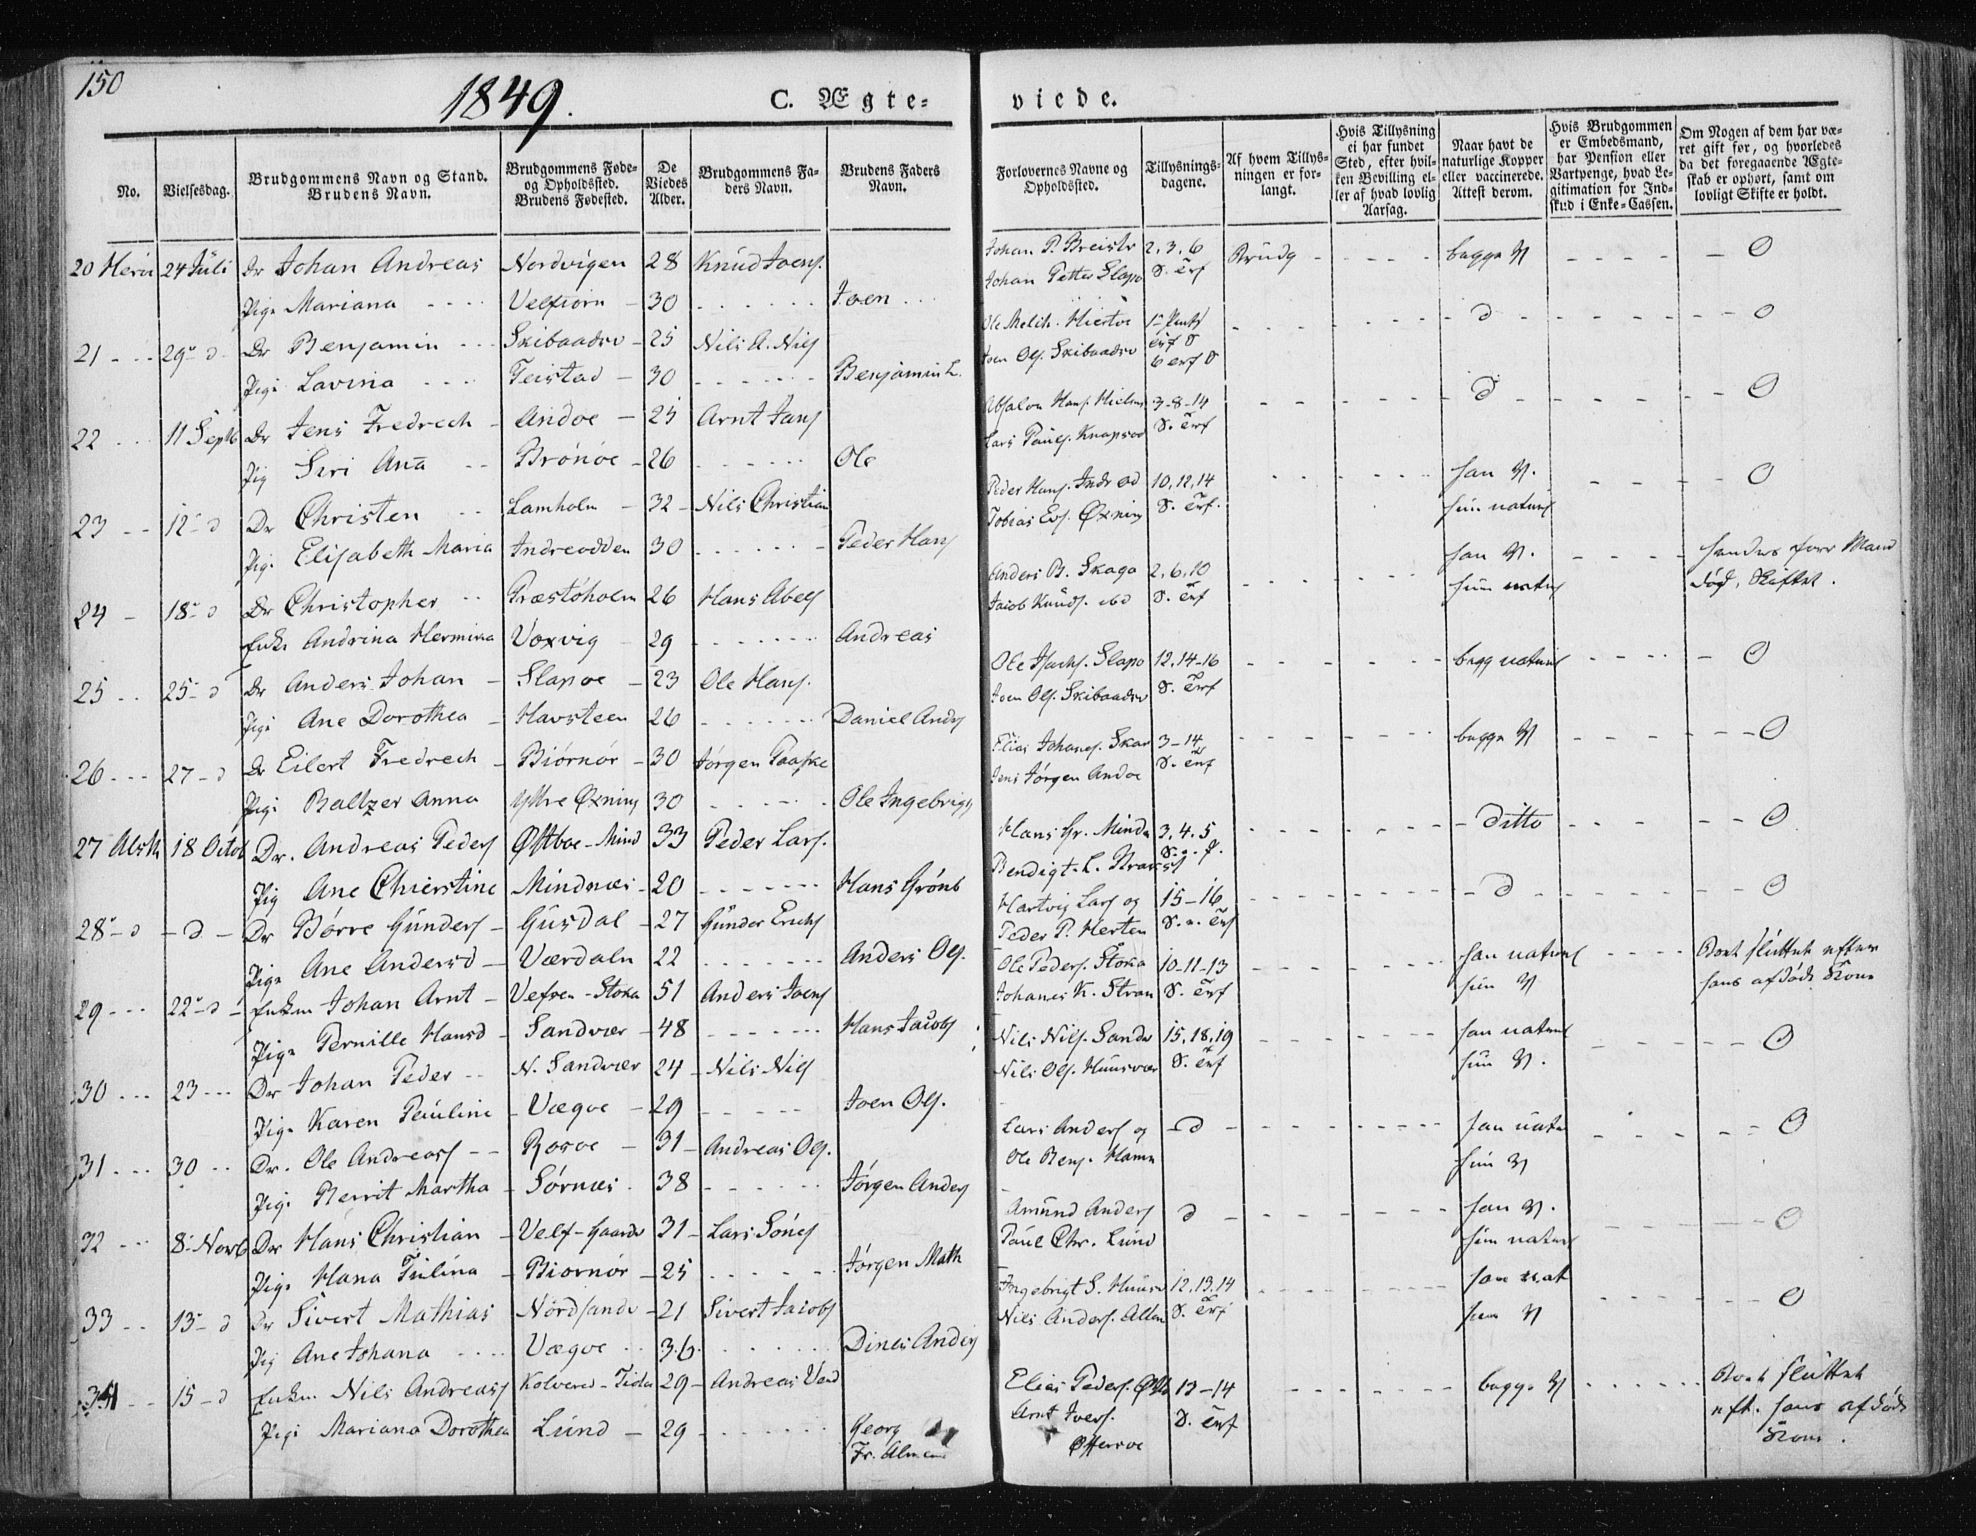 150
1849.
C. Ægte-
viede.
No.
Vielsesdag.
Brudgommens Navn og Stand.
Brudens Navn.
Brudgommens Føde-
og Opholdssted.
Brudens Fødested.
De
Viedes
Alder.
Brudgommens Fa-
ders Navn.
Brudens Faders
Navn.
Forlovernes Navne og
Opholdssted.
Tillysnings-
dagene.
Af hvem Tillys-
ningen er for-
langt.
Hvis Tillysning
ei har fundet
Sted, efter hvil-
ken Bevilling el-
ler af hvad lovlig
Aarsag.
Naar havt de
naturlige Kopper
eller vaccinerede.
Attest derom.
Hvis Brudgommen
er Embedsmand,
har Pension eller
Vartpenge, hvad Le-
gitimation for Ind-
skud i Enke-Cassen.
Om Nogen af dem har væ-
ret gift før, og hvorledes
da det foregaaende Ægte-
skab er ophørt, samt om
lovligt Skifte er holdt.
20 Herø 24 Juli Dr Johan Andreas Nordvigen 28 Knud Joens. Johan P. Breistr 2, 3, 6 Brudg begge V O
Pige Mariana Velfiorn 30 Joen Johan Petter Slapø S. Trf
21 29 d Dr Benjamin Skibaadsv 25 Nils A. Nils Ole Melch. Hiertøe d O
Pige Lavina Teistad 30 Benjamin L. Joen Ols. Skibaadsv
22 11 Septb Dr Jens Fredrech Andøe 25 Arnt Jans Absalon Hans. 3-8-14 d O
Pig Siri Ana Brønøe 26 Ole Lars Pauls. S. Trf
23 12 d Dr Christen Lamholm 32 Nils Christian Peder Hans. Indreod 10, 12, 14 han V. O
Pige Elisabeth Maria Indreodden 30 Peder Hans Tobias Øxning S. Trf. hun naturl
24 18 d Dr Christopher Præstøholm 26 Hans Abels Anders B. Skaga 2, 6, 10 han V. hendes forr Mand
Enke Andrina Hermina Voxvig 29 Andreas Jacob Knuds. ibd S. Trf hun naturl død, Skiftet.
25 25 d Dr Anders Johan Slapøe 23 Ole Hans. Ole Isachs. Slapø 12, 14-16 begg naturl O
Pige Ane Dorothea Havsteen 26 Daniel Anders Joen Ols. Skibaadsv S. Trf
26 27 d Dr Eilert Fredrech Biørnør 30 Jørgen Paaske Elias Johans. 3-14 begge V O
Pige Baltzer Anna Yttre Øxning 30 Ole Ingebrigts Jens Jørgen Andøe S. Trf
27 Alsth 18 Octob Dr. Andreas Peders Østbøe-Mind 33 Peder Lars. Hans Gr. Mindn 3. 4. 5 ditto O
Pig Ane Chierstine Mindnæs 20 Hans Grønb Bendigt L.
28 d d Dr Børre Gunders Gusdal 27 Gunder Erichs Hartvig Lars og 15-16 d O
Pige Ane Andersd Værdaln 22 Anders Ols. Peder P. Hesten S. Trf
29 22 d Enkm Johan Arnt Vefsen-Stoka 51 Anders Joens Ole Peders. Stoka 10-11-13 han naturl Boet sluttet efter
Pige Pernille Hansd Sandvær 48 Hans Jacobs Johanes K. Stran S. Trf hun V hans afdøde Kone
30 23 Dr Johan Peder N. Sandvær 24 Nils Nils Nils Nils. Sandv 15, 18, 19 han naturl O
Pige Karen Pauline Vægøe 29 Joen Ols. Nils Ols. Huusvær S. Trf hun V.
31 30 Dr. Ole Andreas Rosøe 31 Andreas Ols. Lars Anders og d han natu O
Pige Berrit Martha Sørnæs 38 Jørgen Anders Ole Benj. Hamn hun V
32 8 Novb Dr Hans Christian Velf-Gaards 31 Lars Søns Amund Anders d han V. O
Pige Hana Julina Biørnør 25 Jørgen Math Paul Chr. Lund hun naturl
33 13 d Dr Sivert Mathias Nordsandv 21 Sivert Jacobs Ingebrigt S. Huusv 12, 13, 14 han nat O
Pig Ane Johana Vægøe 36 Dines Anders Nils Anders. S. Trf hun V
34 15 d Enkm Nils Andreas Kolvered 29 Andreas Elias Peders. 13-14 begge V Boet sluttet
Pige Mariana Dorothea Lund 29 Georg Arnt Ivers. S. Trf eft. hans afdøde
Fr. Offersøe Kone.